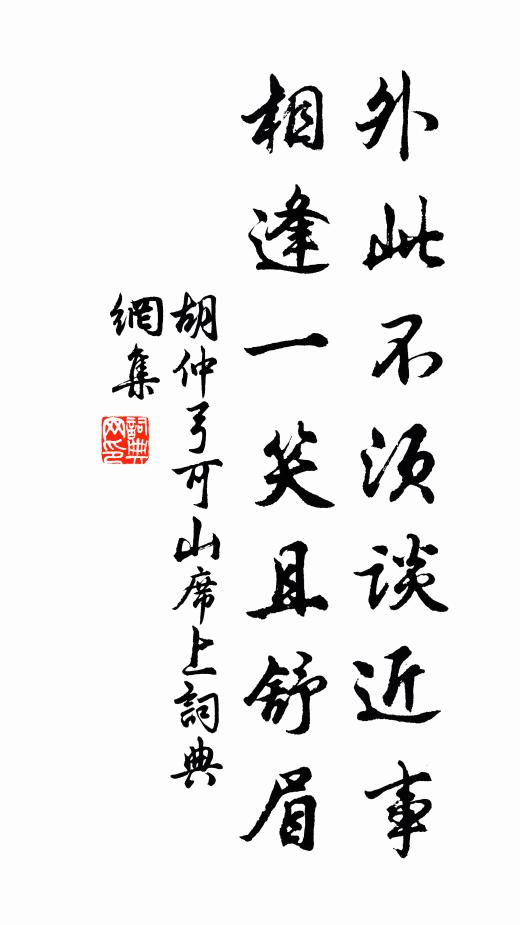 外此不須談近事
相逢一笑且舒眉
胡仲弓可山席上詞典
網集
詞典
网印